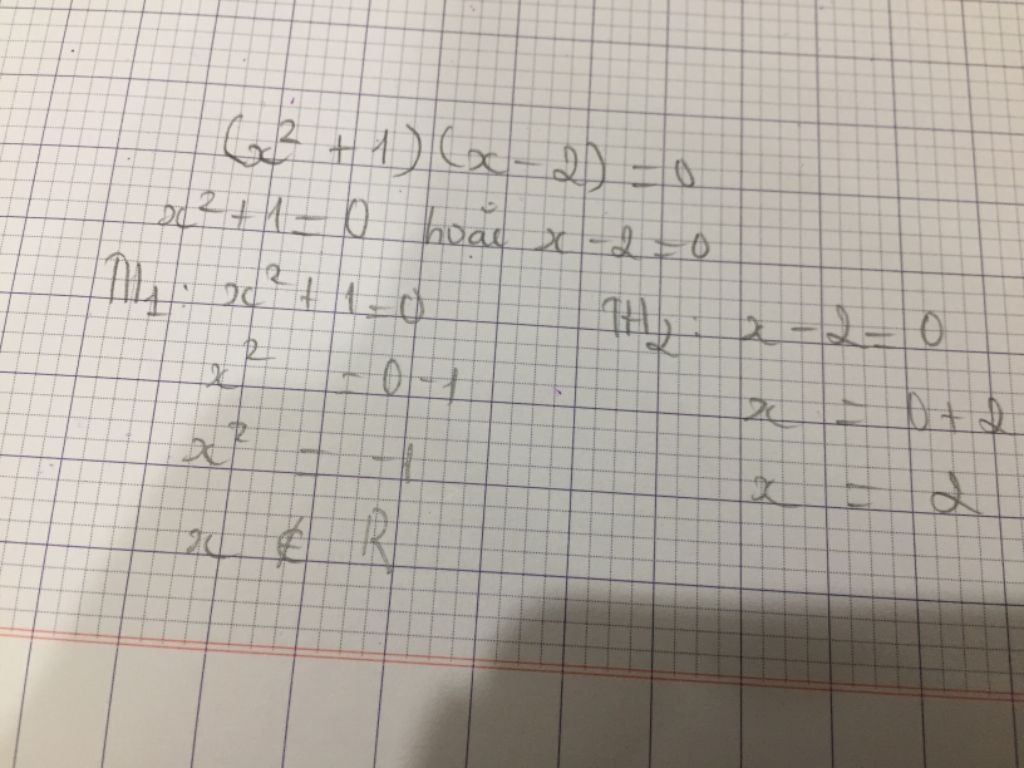 (x² + 1)(x - 2) = 0
x² + 1 = 0 hoặc x - 2 = 0
TH1: x² + 1 = 0
x² = 0 - 1
x² = -1
x ∉ R
TH2: x - 2 = 0
x = 0 + 2
x = 2